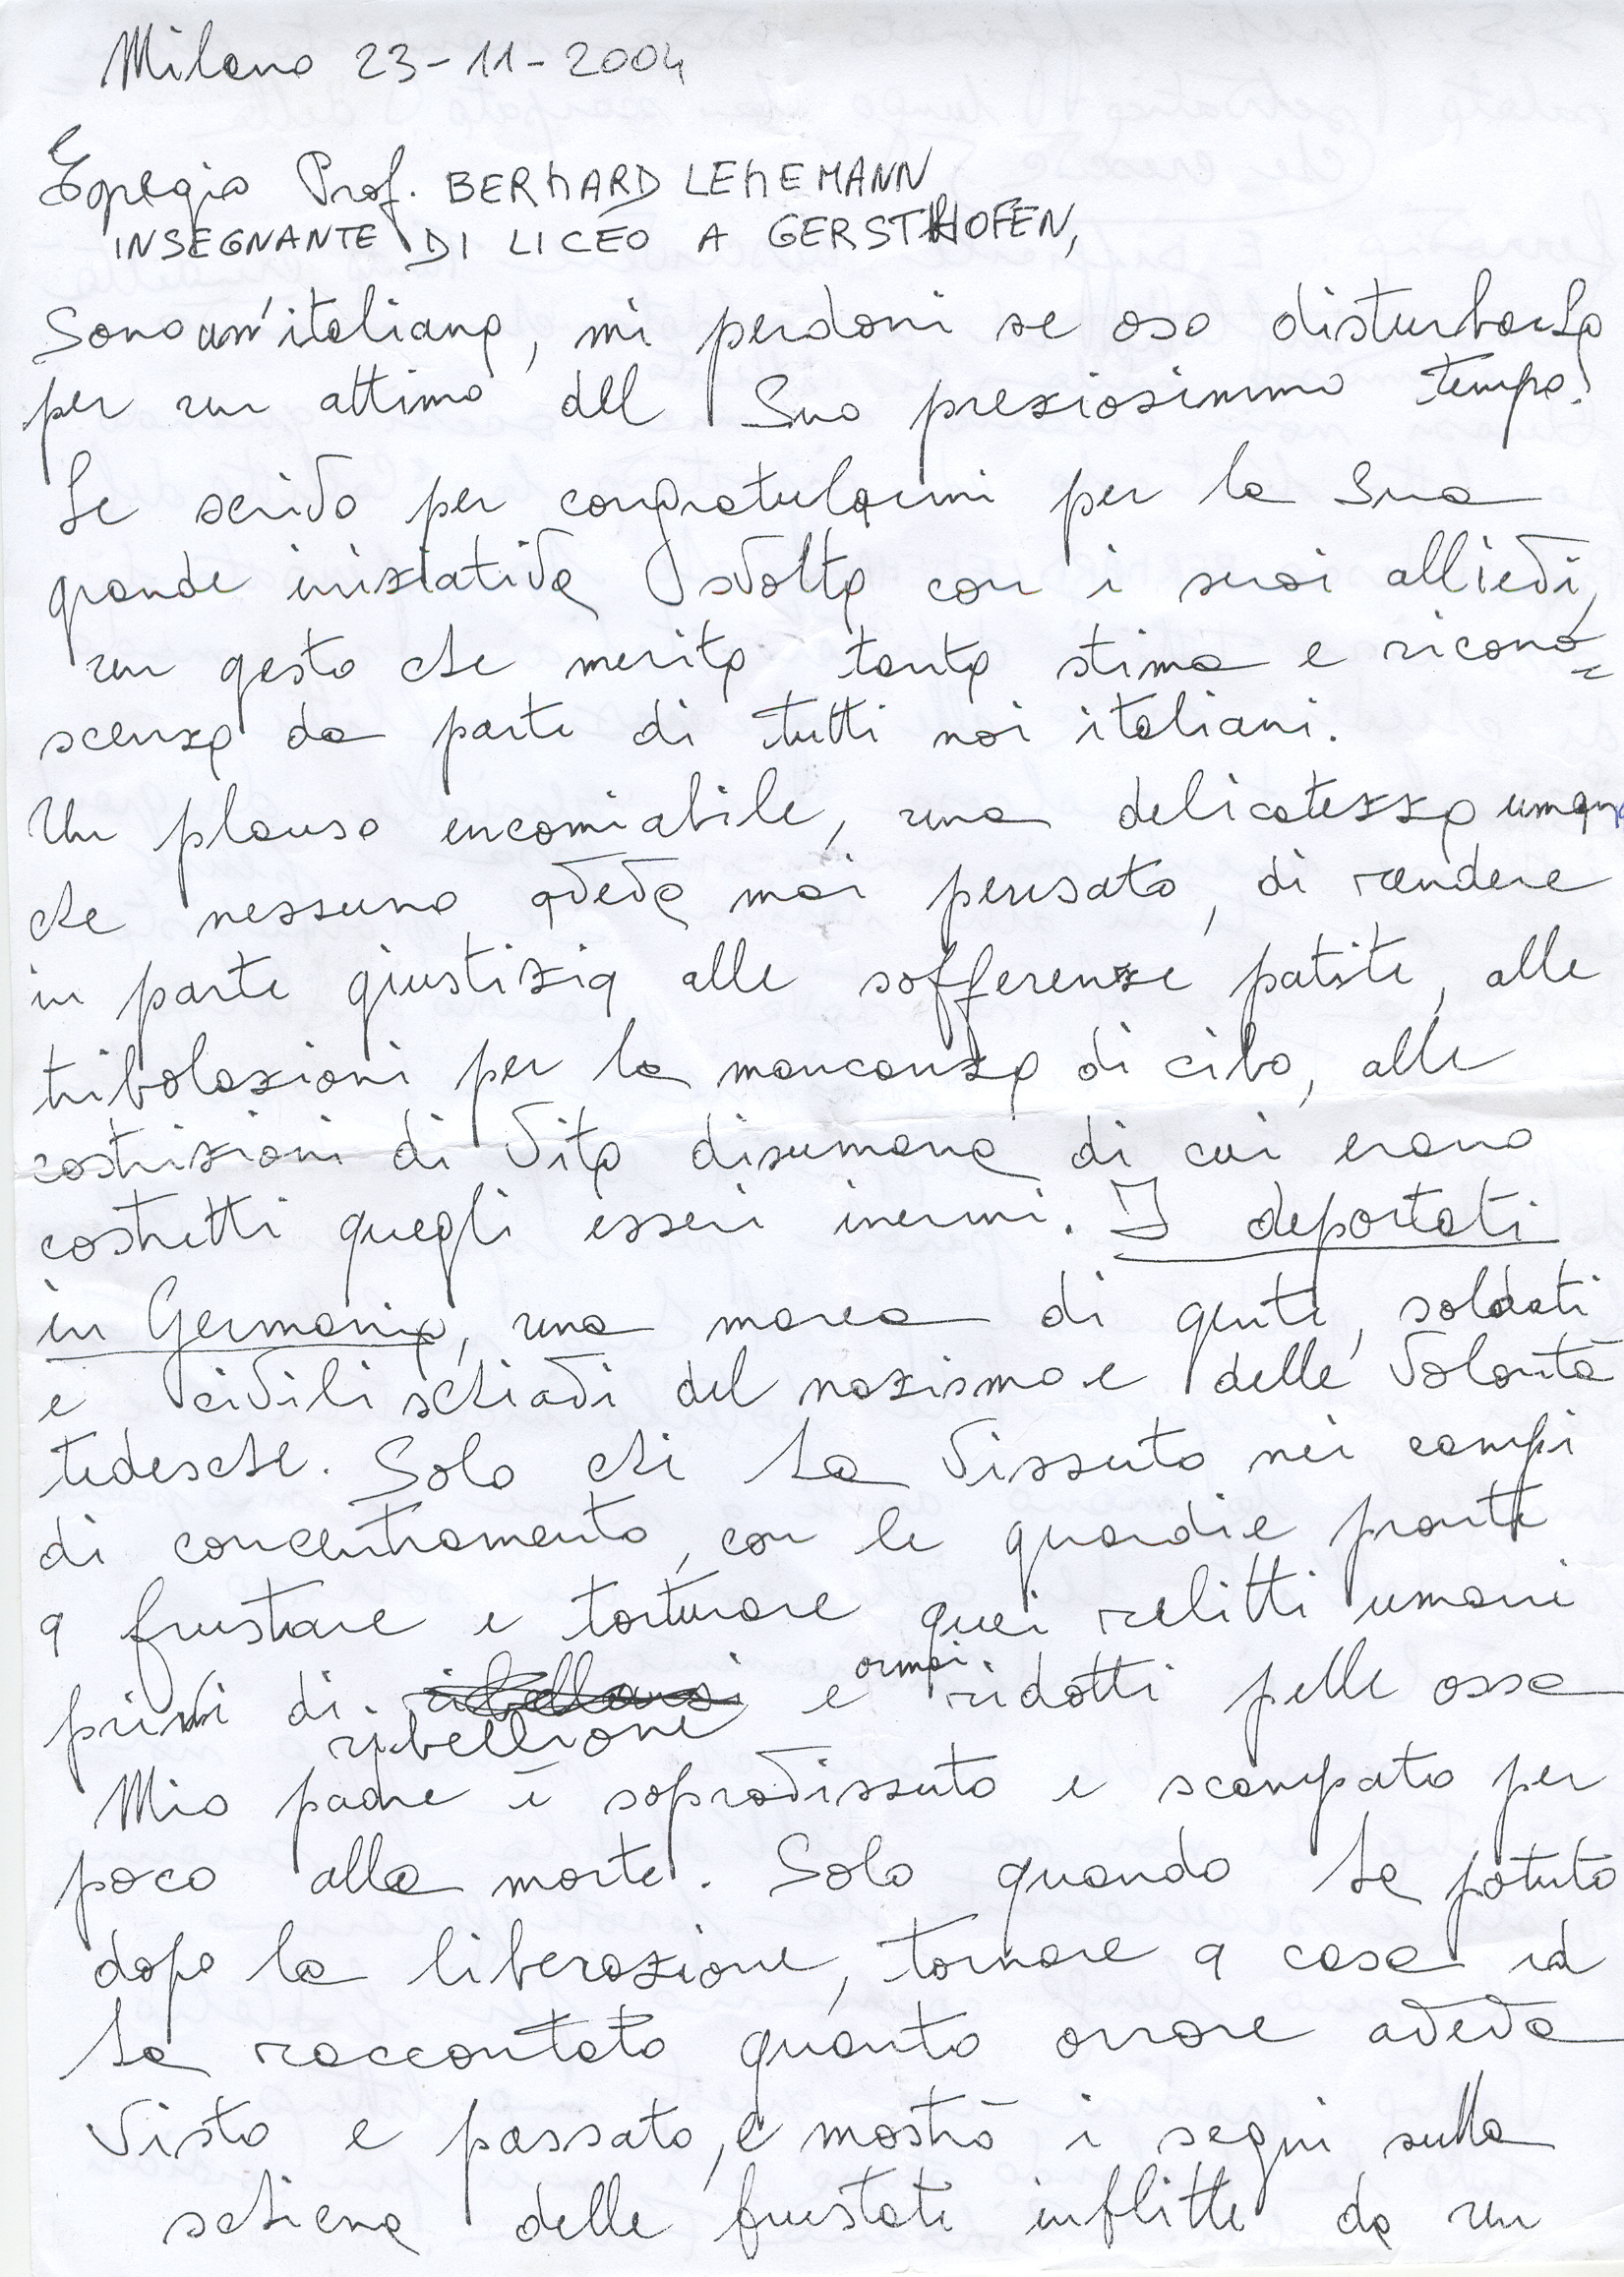 Milano 23-11-2004
Egregio Prof. BERNARD LEHEMANN
INSEGNANTE DI LICEO A GERSTHOFEN,
Sono un'italiana, mi perdoni se oso disturbarLa
per un attimo del Suo preziosimmo tempo.
Le scrivo per congratularmi per la Sua
grande iniziativa svolta con i suoi allievi,
un gesto che merita tanta stima e ricono=
scenza da parte di tutti noi italiani.
Un plauso encomiabile, una delicatezza umana
che nessuno aveva mai pensato, di rendere
in parte giustizia alle sofferenze patite, alle
tribolazioni per la mancanza di cibo, alle
costrizioni di vita disumana di cui erano
costretti quegli esseri inermi. I deportati
in Germania, una marea di gente, soldati
e civili schiavi del nazismo e delle volontà
tedesche. Solo chi ha vissuto nei campi
di concentramento, con le guardie pronte
a frustare e torturare quei relitti umani
privi di ribellarsi ribellione e ormai ridotti pelle ossa
Mio padre è sopravissuto e scampato per
poco alla morte. Solo quando ha potuto
dopo la liberazione, tornare a casa ed
ha raccontato quanto orrore aveva
visto e passato, e mostrò i segni sulla
schiena delle frustate inflitte da un